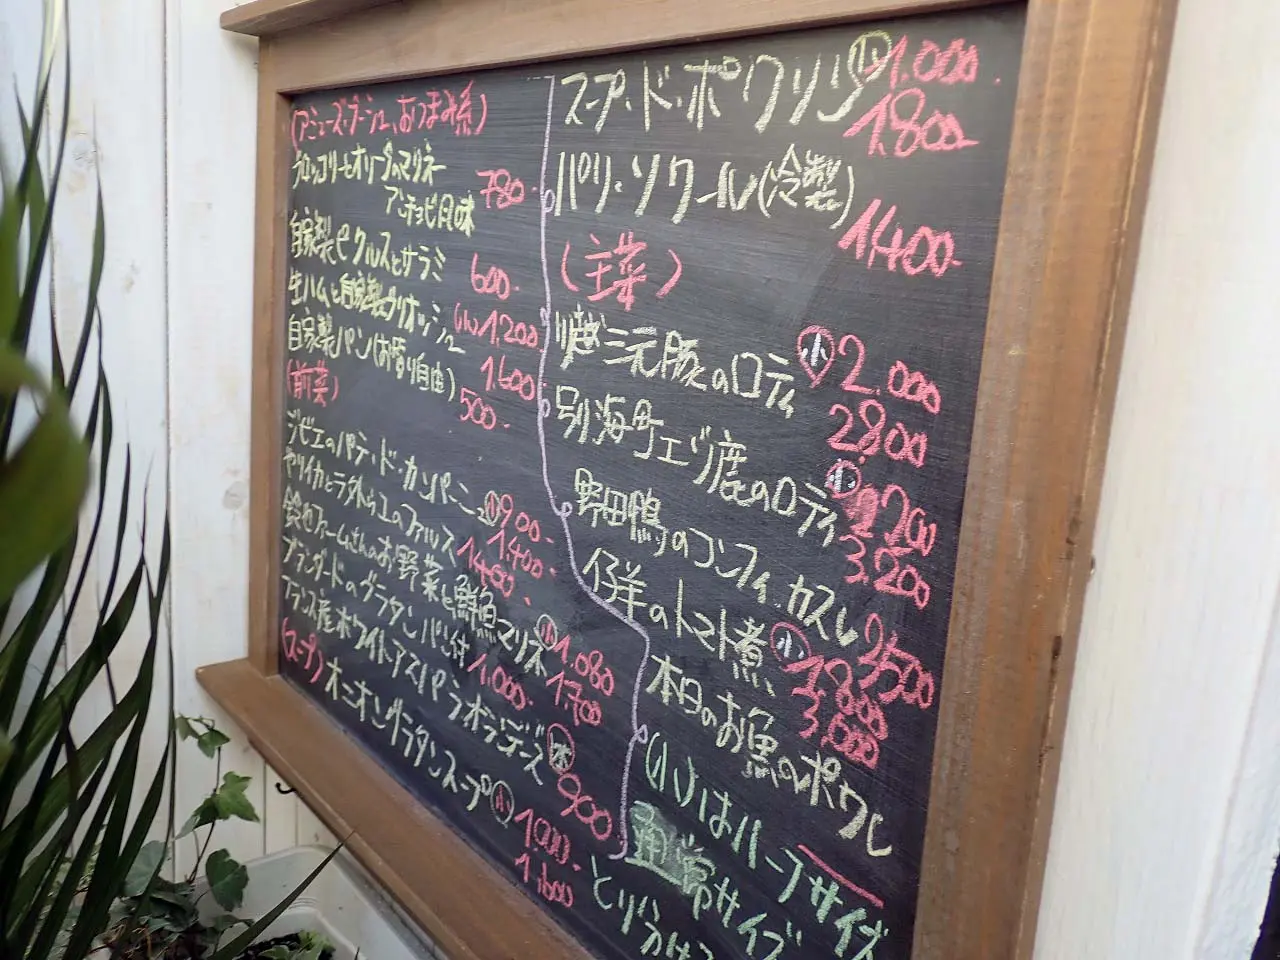 (アミューズ・ブーシュ、おつまみ系)
ブロッコリーとオリーブのマリネ
アンチョビ風味 780-
自家製ピクルスとサラミ 600-
生ハムと自家製ブリオッシュ (小)1,200
1,600-
自家製パン(お替り自由) 500-
(前菜)
ジビエのパテ・ド・カンパーニュ 小 900-
1,400-
ヤリイカとラタトゥユのファルス 1400-
鈴也ファームさんのお野菜と鮮魚マリネ 小 1,080
1,700
ブランダードのグラタン パン付 1,000-
フランス産ホワイトアスパラオランデーズ 900
(スープ)
オニオングラタンスープ 小 1,000-
1,600
スープ・ド・ポワソン 小 1.000-
1,800-
パリ・ソワール(冷製) 1,400-
(主菜)
越三元豚のロティ 小 2.000
2800
別海町エゾ鹿のロティ 小 2200
3.200
野田鴨のコンフィ カスレ 2500
仔羊のトマト煮 小 1800
3,000
本日のお魚のポワレ
(小)はハーフサイズ
通常サイズ
とりわけ